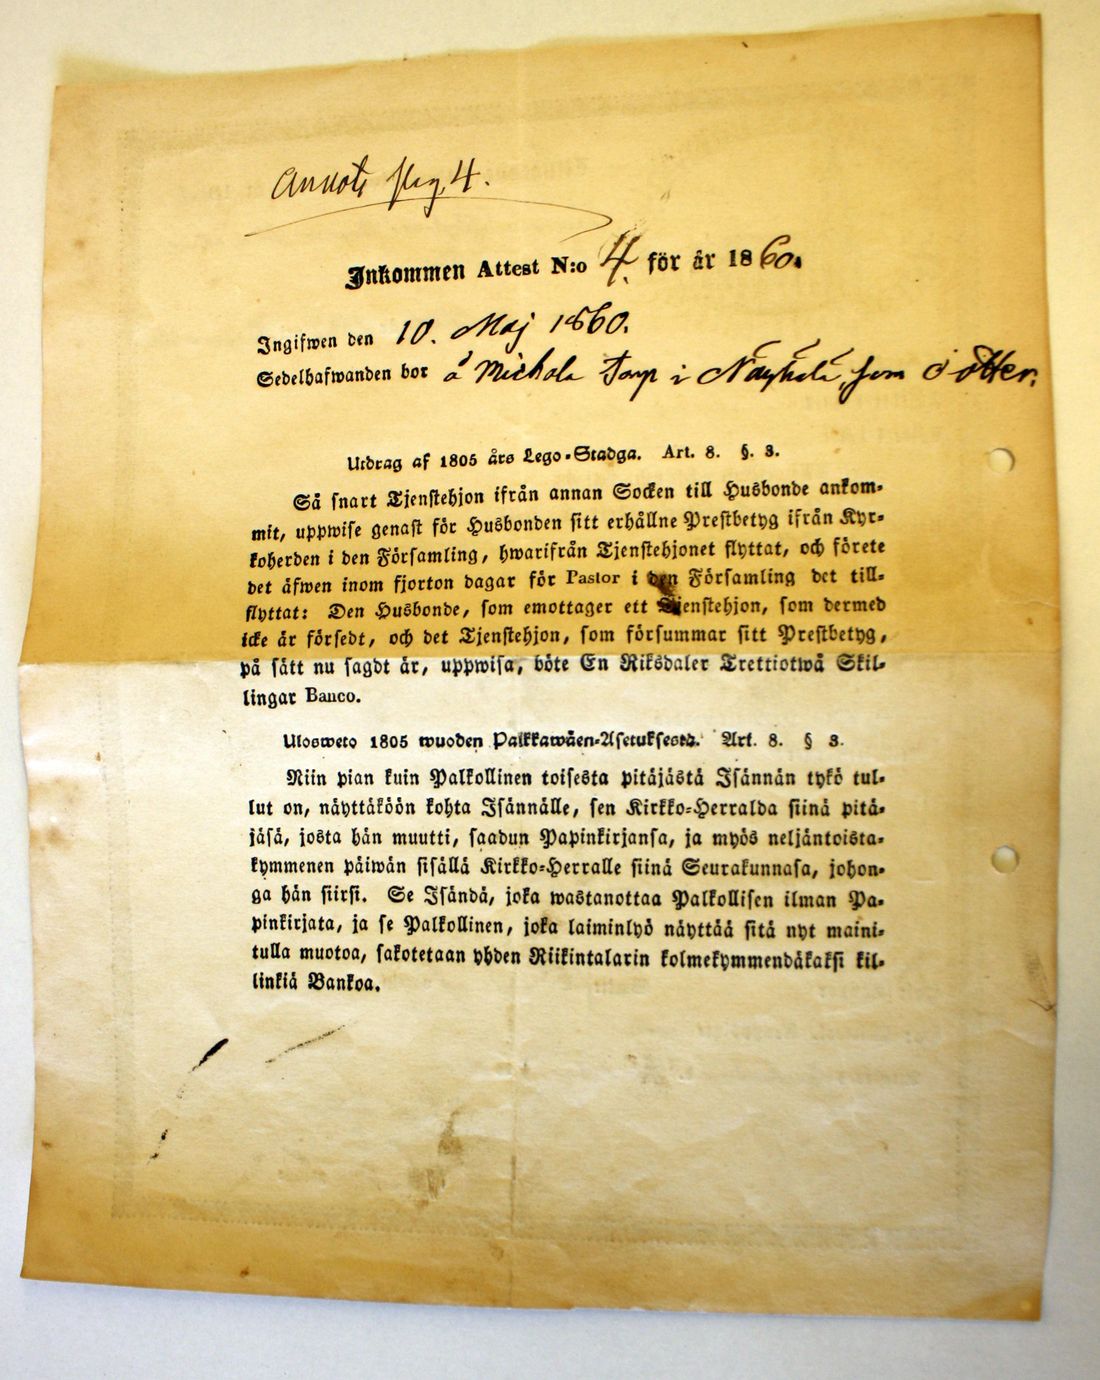 Annot: pag. 4.
Inkommen Attest N:o 4. för år 1860.
Ingifwen den 10. Maj 1860.
Sedelhafwanden bor å Michola Torp i
Utdrag af 1805 års Lego-Stadga. Art. 8. §. 3.
Så snart Tjenstehjon ifrån annan Socken till Husbonde ankom-
mit, uppwise genast för Husbonden sitt erhållne Prestbetyg ifrån Kyr-
koherden i den Församling, hwarifrån Tjenstehjonet flyttat, och förete
det äfwen inom fjorton dagar för Pastor i den Församling det till-
flyttat: Den Husbonde, som emottager ett Tjenstehjon, som dermed
icke är försedt, och det Tjenstehjon, som försummar sitt Prestbetyg,
på sätt nu sagdt är, uppwisa, böte En Riksdaler Trettiotwå Skil-
lingar Banco.
Ulosweto 1805 wuoden Palkkawäen-Asetuksesta. Art. 8. § 3.
Niin pian kuin Palkollinen toisesta pitäjästä Isännän tykö tul-
lut on, näyttäköön kohta Isännälle, sen Kirkko-Herralda siinä pitä-
jäsä, josta hän muutti, saadun Papinkirjansa, ja myös neljäntoista-
kymmenen päiwän sisällä Kirkko-Herralle siinä Seurakunnasa, johon-
ga hän siirsi. Se Isändä, joka wastanottaa Palkollisen ilman Pa-
pinkirjata, ja se Palkollinen, joka laiminlyö näyttää sitä nyt maini-
tulla muotoa, sakotetaan yhden Riikintalarin kolmekymmendäkaksi kil-
linkiä Bankoa.